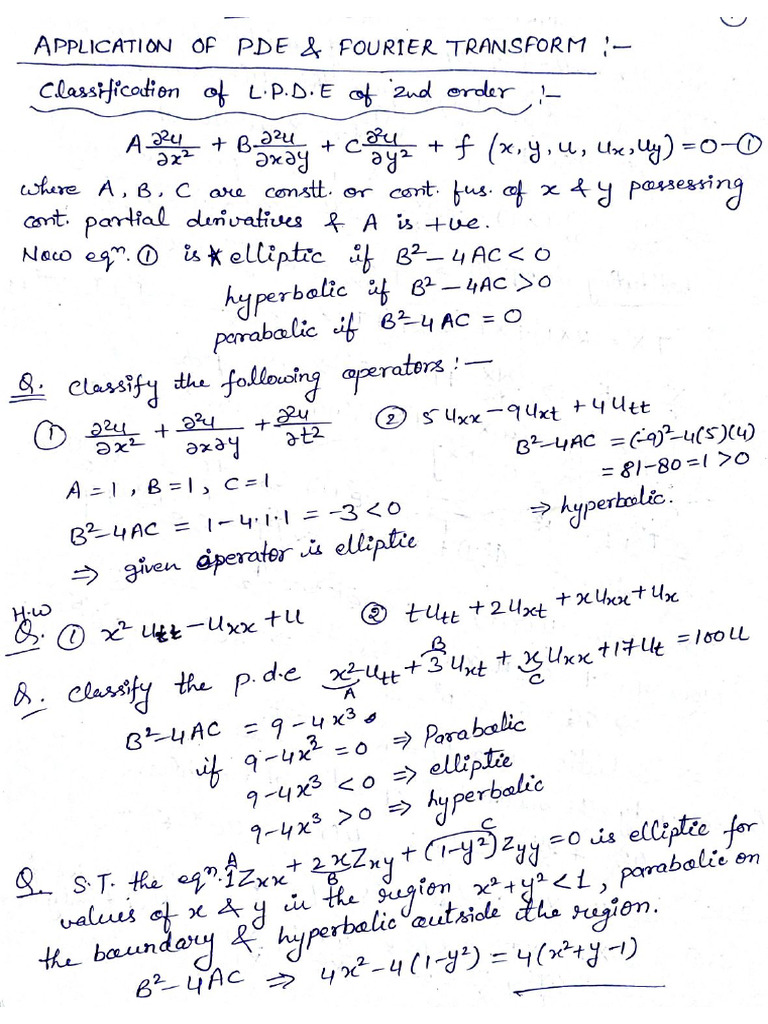 APPLICATION OF PDE & FOURIER TRANSFORM :-
Classification of L.P.D.E of 2nd order :-
A ∂²u/∂x² + B ∂²u/∂x∂y + C ∂²u/∂y² + f (x, y, u, ux, uy) = 0 - ①
where A, B, C are constt. or cont. fns. of x & y possessing
cont. partial derivatives & A is +ve.
Now eqⁿ. ① is elliptic if B² - 4AC < 0
hyperbolic if B² - 4AC > 0
parabolic if B² - 4AC = 0
Q. Classify the following operators :-
① ∂²u/∂x² + ∂²u/∂x∂y + ∂²u/∂t²
A = 1, B = 1, C = 1
B² - 4AC = 1 - 4·1·1 = -3 < 0
⇒ given operator is elliptic
② 5uxx - 9uxt + 4utt
B² - 4AC = (-9)² - 4(5)(4)
= 81 - 80 = 1 > 0
⇒ hyperbolic.
H.W
Q. ① x² utt - uxx + u ② t utt + 2uxt + x uxx + ux
Q. Classify the p.d.e x² utt + 3 uxt + x uxx + 17 ut = 100u
A B C
B² - 4AC = 9 - 4x³
if 9 - 4x³ = 0 ⇒ Parabolic
9 - 4x³ < 0 ⇒ elliptic
9 - 4x³ > 0 ⇒ hyperbolic
A B C
Q. S.T. the eqⁿ. 1Zxx + 2x Zxy + (1-y²) Zyy = 0 is elliptic for
values of x & y in the region x² + y² < 1, parabolic on
the boundary & hyperbolic outside the region.
B² - 4AC ⇒ 4x² - 4(1-y²) = 4(x² + y - 1)